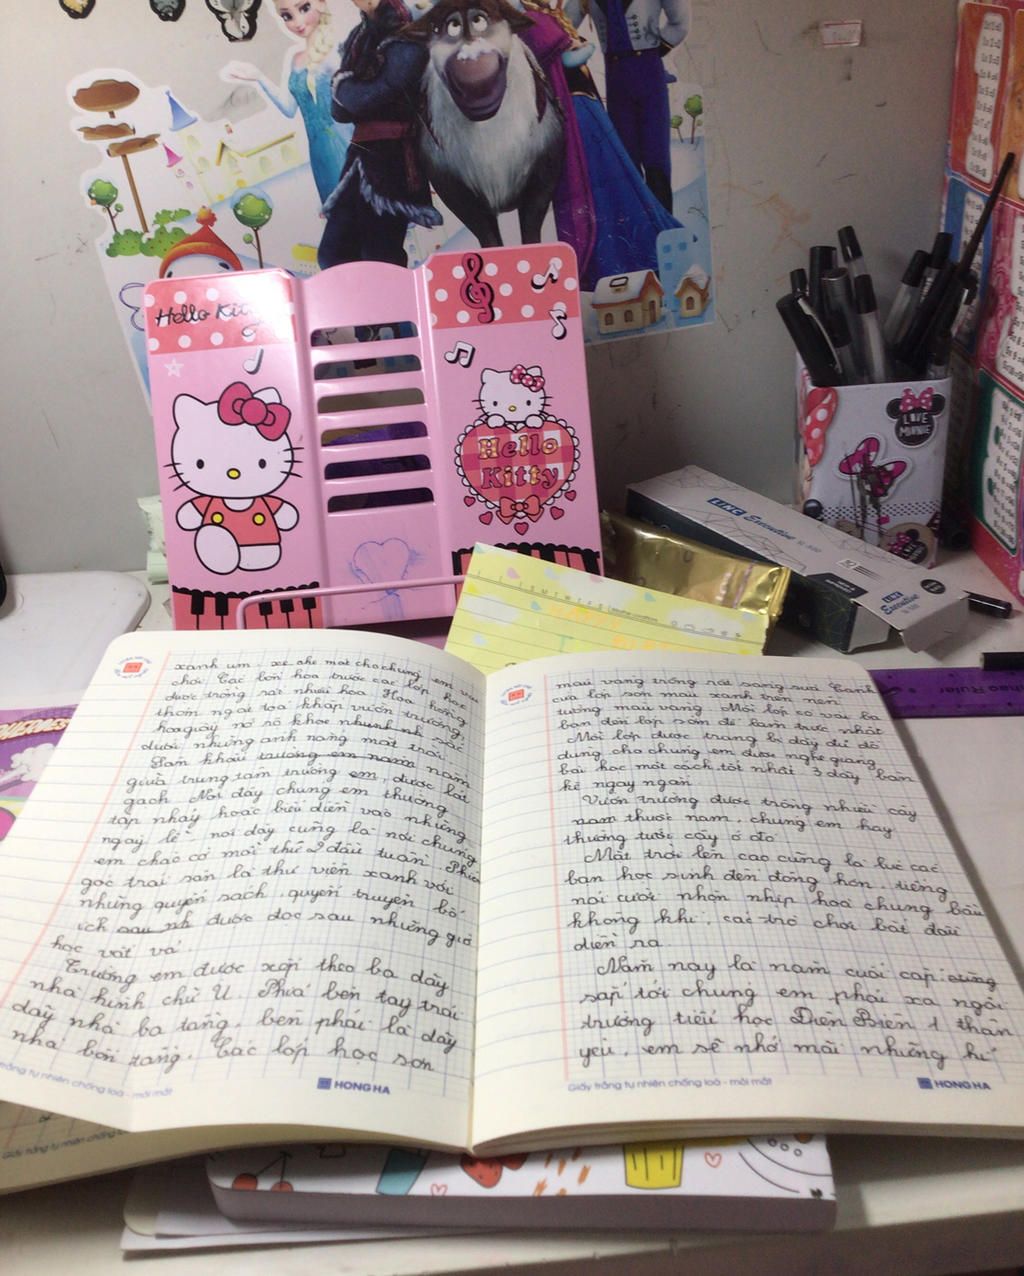 Hello Kitty
Hello
Kitty
LOVE
MINNIE
LINC Executive SL-500
LINC
Executive
xanh um, xe che mát cho chúng em vui
chơi. Các bồn hoa trước các lớp học
được trồng rất nhiều hoa. Hoa hồng
thơm ngát toả khắp vườn trường,
hoa giấy nở rộ khoe sắc
dưới những ánh nắng mặt trời.
Sân khấu trường em nằm
giữa trung tâm trường em, được lát
gạch. Nơi đây chúng em thường
tập nhảy hoặc biểu diễn vào những
ngày lễ. nơi đây cũng là nơi chúng
em chào cờ mỗi thứ 2 đầu tuần. Phía
góc trái sân là thư viện xanh với
những quyển sách, quyển truyện bổ
ích được đọc sau những giờ
học vất vả
Trường em được xây theo ba dãy
nhà hình chữ U. Phía bên tay trái
dãy nhà ba tầng, bên phải là dãy
nhà bốn tầng. Các lớp học sơn
Giấy trắng tự nhiên chống loá - mỏi mắt
HONG HA
màu vàng trông rất sáng sủa. Cánh
cửa lớp sơn màu xanh trên nền
tường màu vàng. Mỗi lớp có vài ba
bạn đến lớp sớm để làm trực nhật
Mỗi lớp được trang bị đầy đủ đồ
dùng cho chúng em được nghe giảng
bài học một cách tốt nhất. 3 dãy bàn
kê ngay ngắn
Vườn trường được trồng nhiều cây
thuốc nam, chúng em hay
thường tưới cây ở đó
Mặt trời lên cao cũng là lúc các
bạn học sinh đến đông hơn, tiếng
nói cười nhộn nhịp hoà chung bầu
không khí, các trò chơi bắt đầu
diễn ra.
Năm nay là năm cuối cấp, cũng
sắp tới chúng em phải xa ngôi
trường tiểu học Điện Biên 1 thân
yêu, em sẽ nhớ mãi những kỉ
Giấy trắng tự nhiên chống loá - mỏi mắt
HONG HA